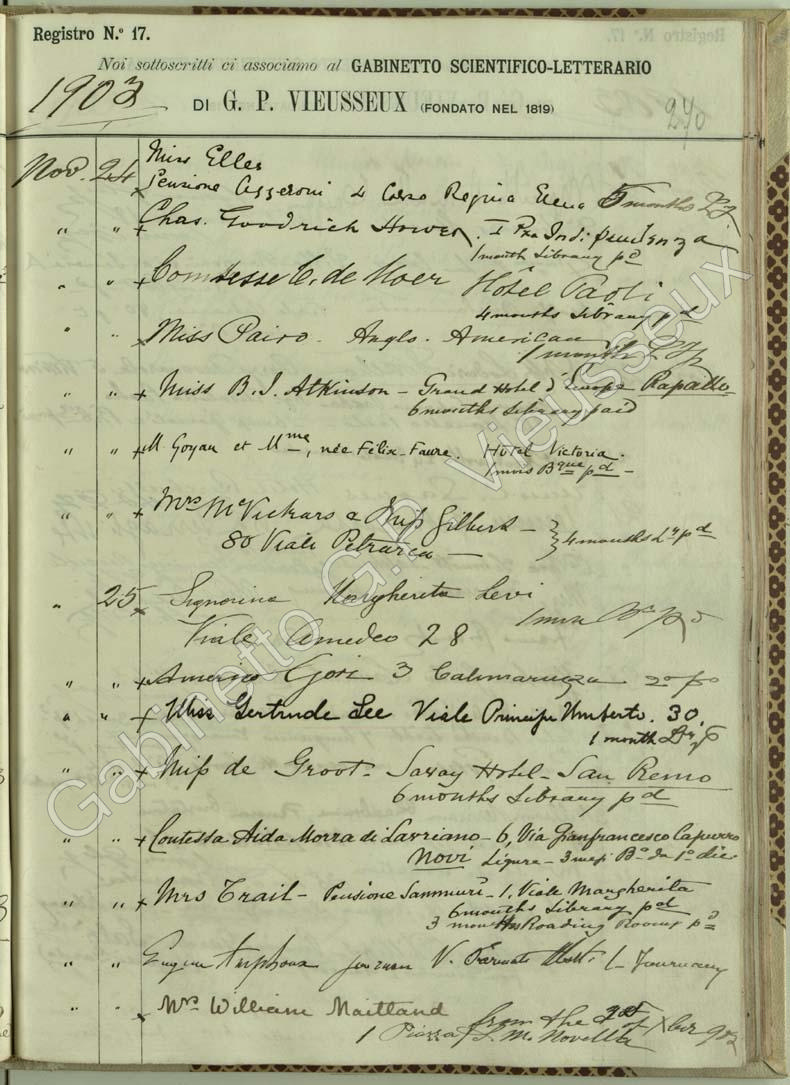 Registro N.º 17.
Noi sottoscritti ci associamo al GABINETTO SCIENTIFICO-LETTERARIO
1903
DI G. P. VIEUSSEUX (FONDATO NEL 1819)
270
Nov. 24 Miss Elles
Pensione 4 Corso Regina Elena 5 months
" " Chas. Goodrich Hower. I Pza Indipendenza
1 month Library pd
" " Comtesse C. de Hôtel Paoli
4 months Library pd
" " Miss Pairo. Anglo. American
1 month
" " Miss B. J. Atkinson - Grand Hotel d'Europe Rapallo
6 months Library paid
" " M. Goyau et Mme, née Félix-Faure. Hôtel Victoria.
1 mois Bque pd -
" " Mrs McVickars & Miss Gilbert -
80 Viale Petrarca - 4 months Ly pd
" 25 Signorina Margherita Levi
Viale Amedeo 28
" " Americo Gori 3 Calimaruzza
" " Miss Gertrude Lee Viale Principe Umberto. 30.
1 month
" " Miss de Groot - Savoy Hotel - San Remo
6 months Library pd
" " Contessa Aida Morra di Lavriano - 6, Via Gianfrancesco Capurro
Novi Ligure - 3 mesi Ba da 1º dic
" " Mrs Trail - Pensione - 1, Viale Margherita
6 months Library pd
3 months Reading Rooms pd
" " V.
" " Mrs William Maitland
from the 1st of Xber 903
1 Piazza S. M. Novella
Gabinetto G.P. Vieusseux